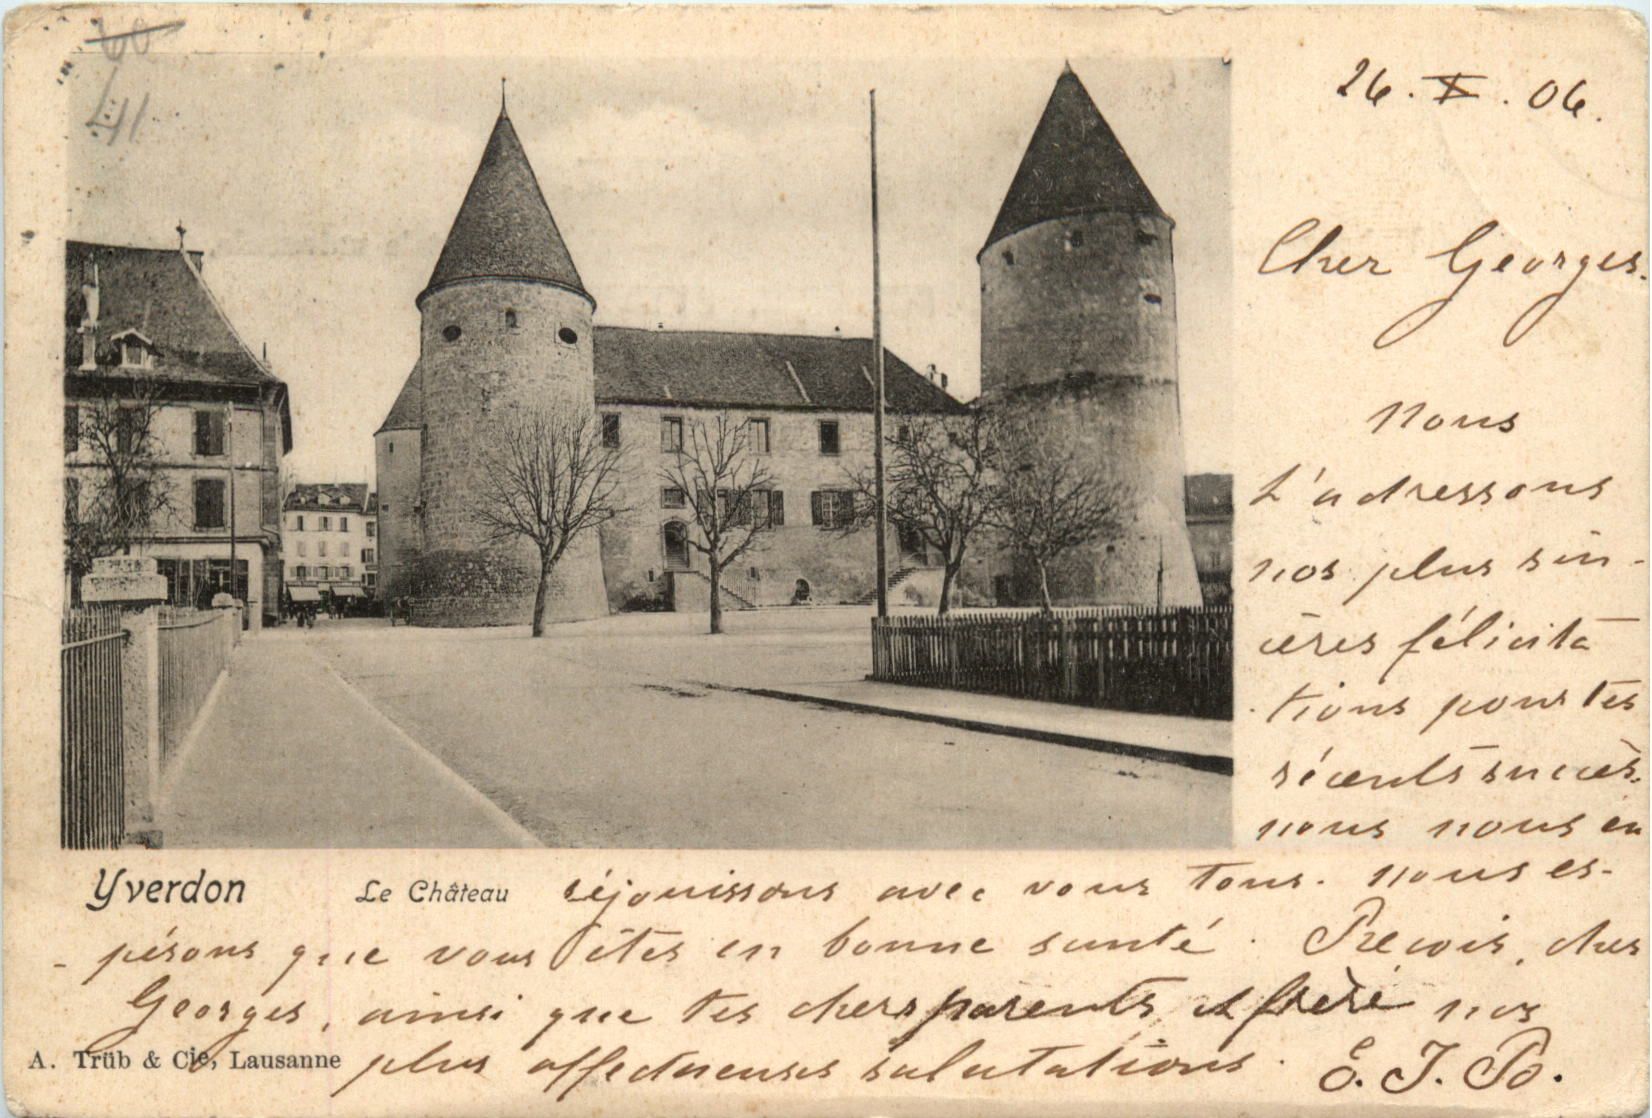 60
41
26.X.06.
Cher Georges.
Nous
t'adressons
nos plus sin-
cères félicita
tions pour tes
récents succès.
nous nous en
Yverdon Le Château réjouissons avec vous tous. nous es-
- pérons que vous êtes en bonne santé. Reçois, cher
Georges, ainsi que tes chers parents et frère nos
A. Trüb & Cie, Lausanne plus affectueuses salutations. E. J. Po.